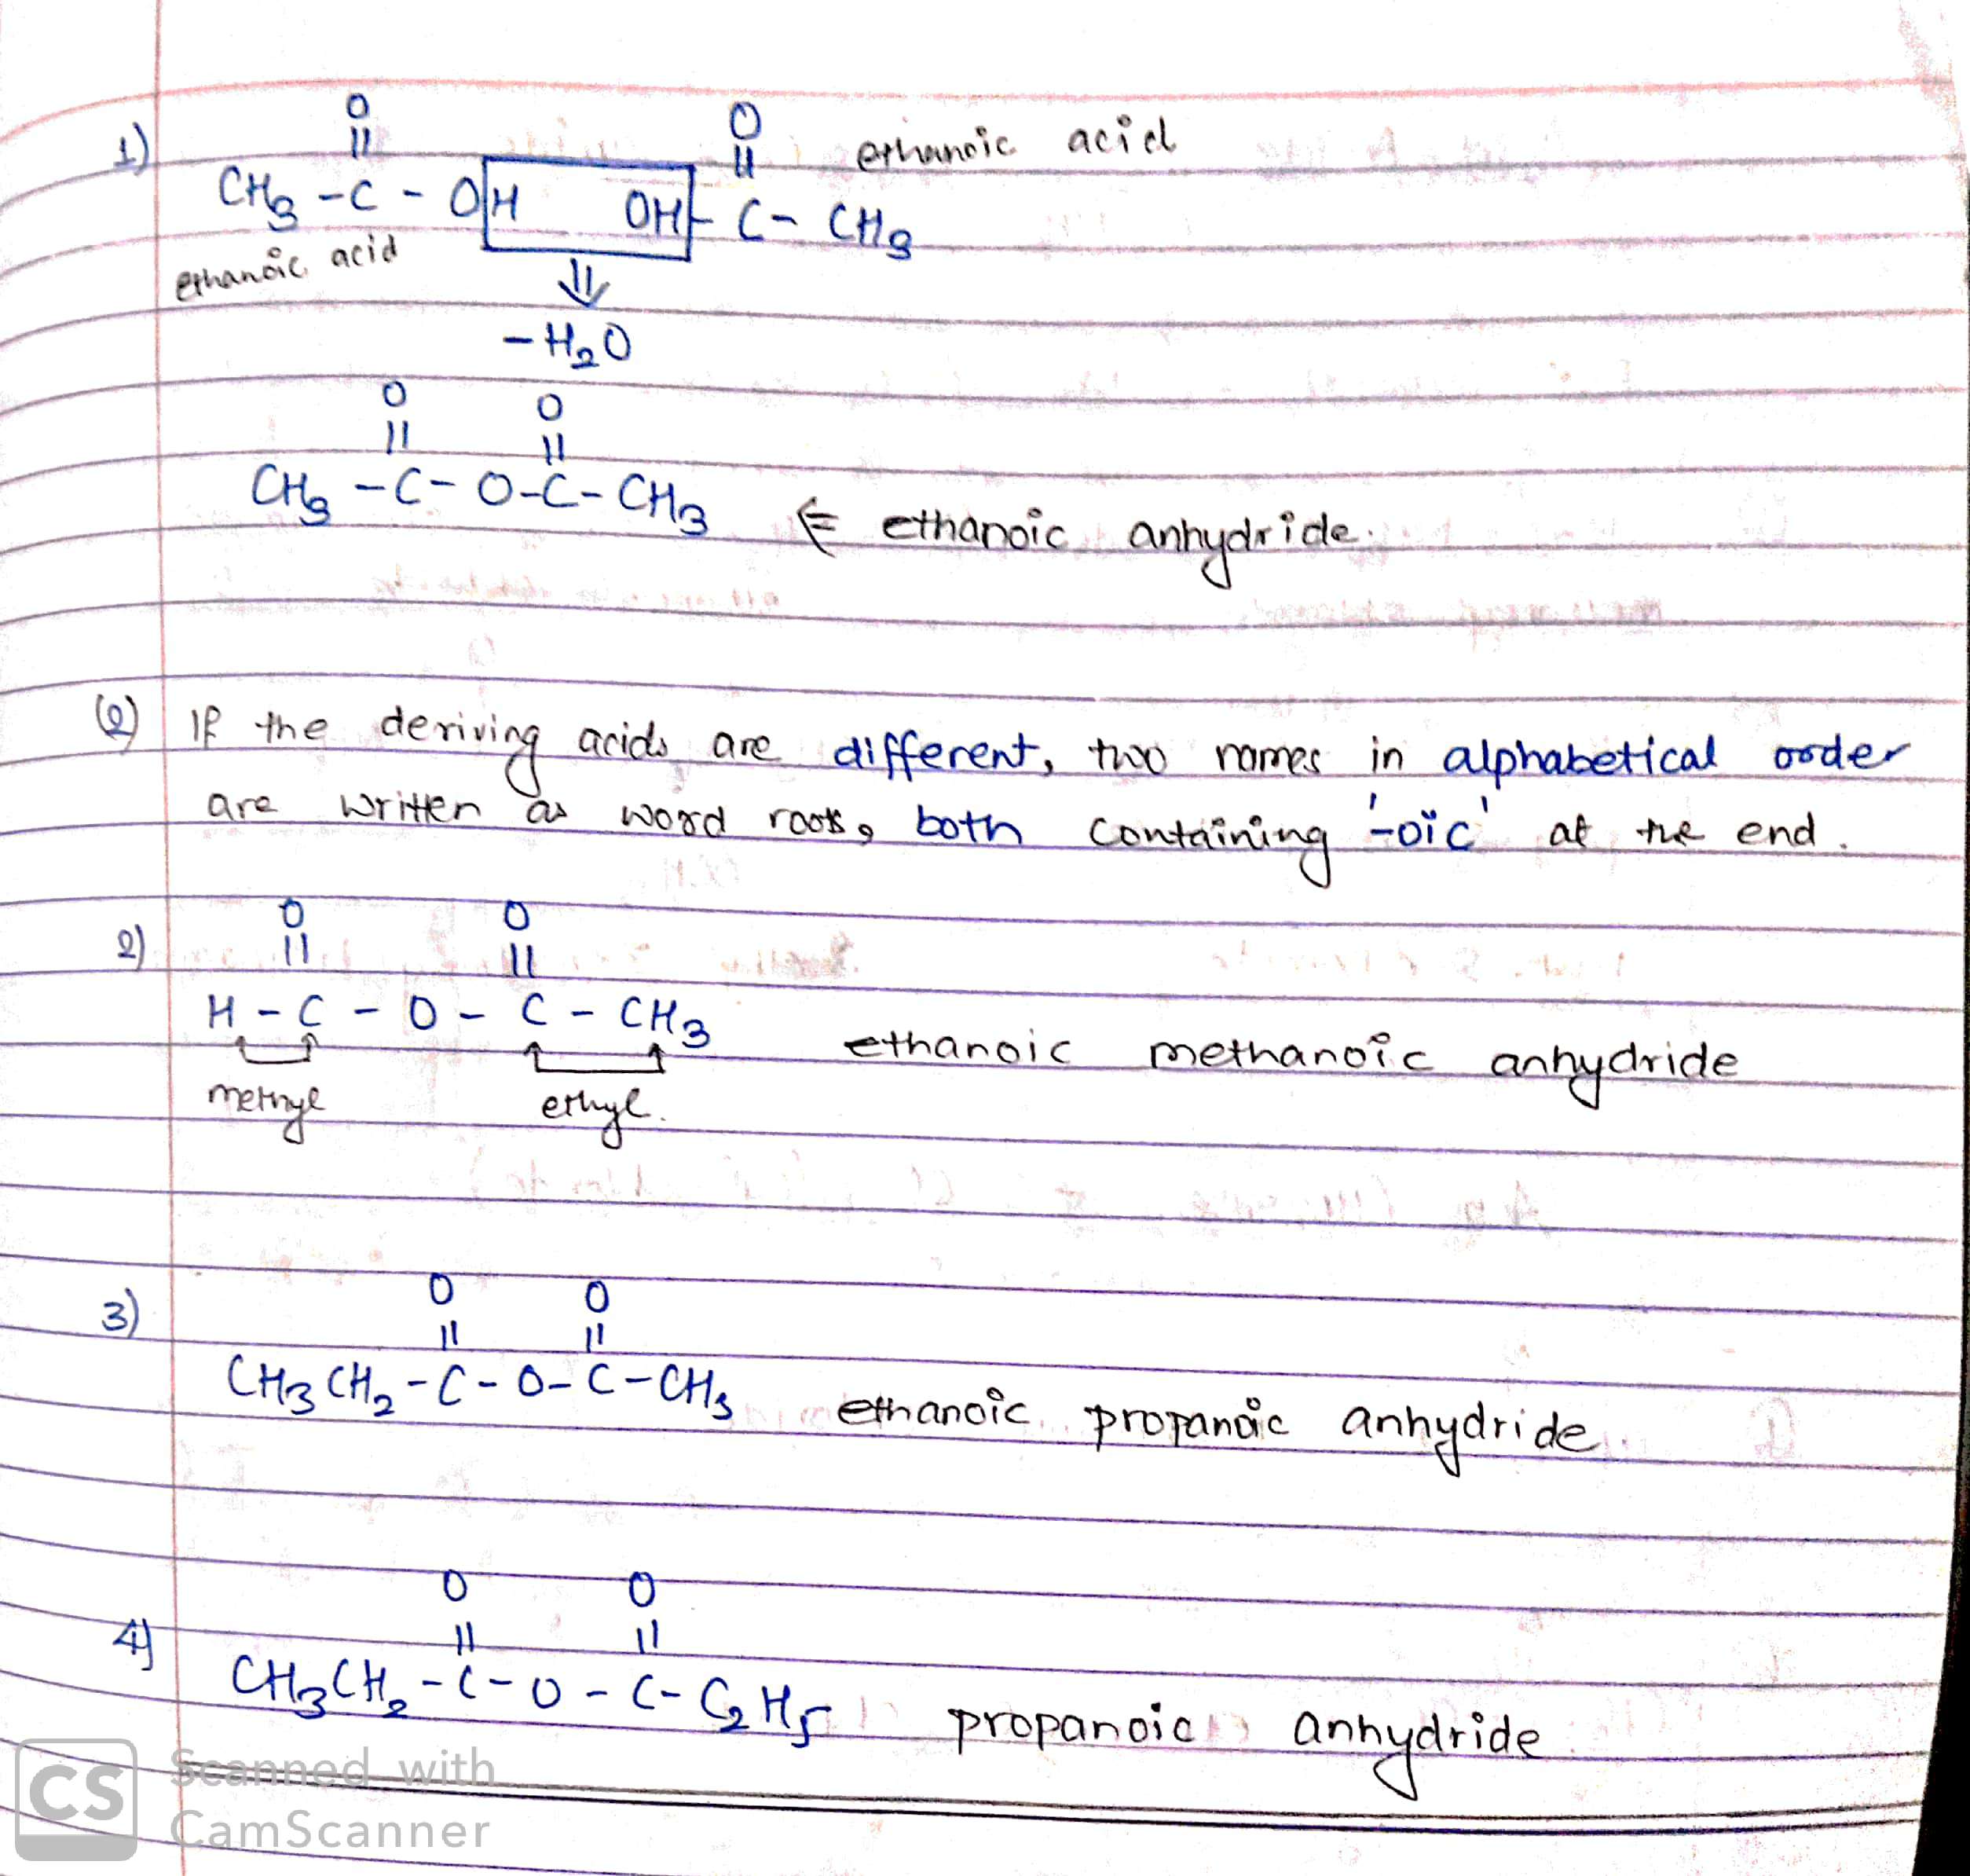 1)
O O
|| || ethanoic acid
CH3 - C - OH OH - C - CH3
ethanoic acid
⇓
- H2O
O O
|| ||
CH3 - C - O - C - CH3 ⇐ ethanoic anhydride.
(2) If the deriving acids are different, two names in alphabetical order
are written as word roots, both containing '-oic' at the end.
2)
O O
|| ||
H - C - O - C - CH3 ethanoic methanoic anhydride
methyl ethyl.
3)
O O
|| ||
CH3 CH2 - C - O - C - CH3 ethanoic propanoic anhydride.
4)
O O
|| ||
CH3 CH2 - C - O - C - C2 H5 propanoic anhydride
CS Scanned with
CamScanner